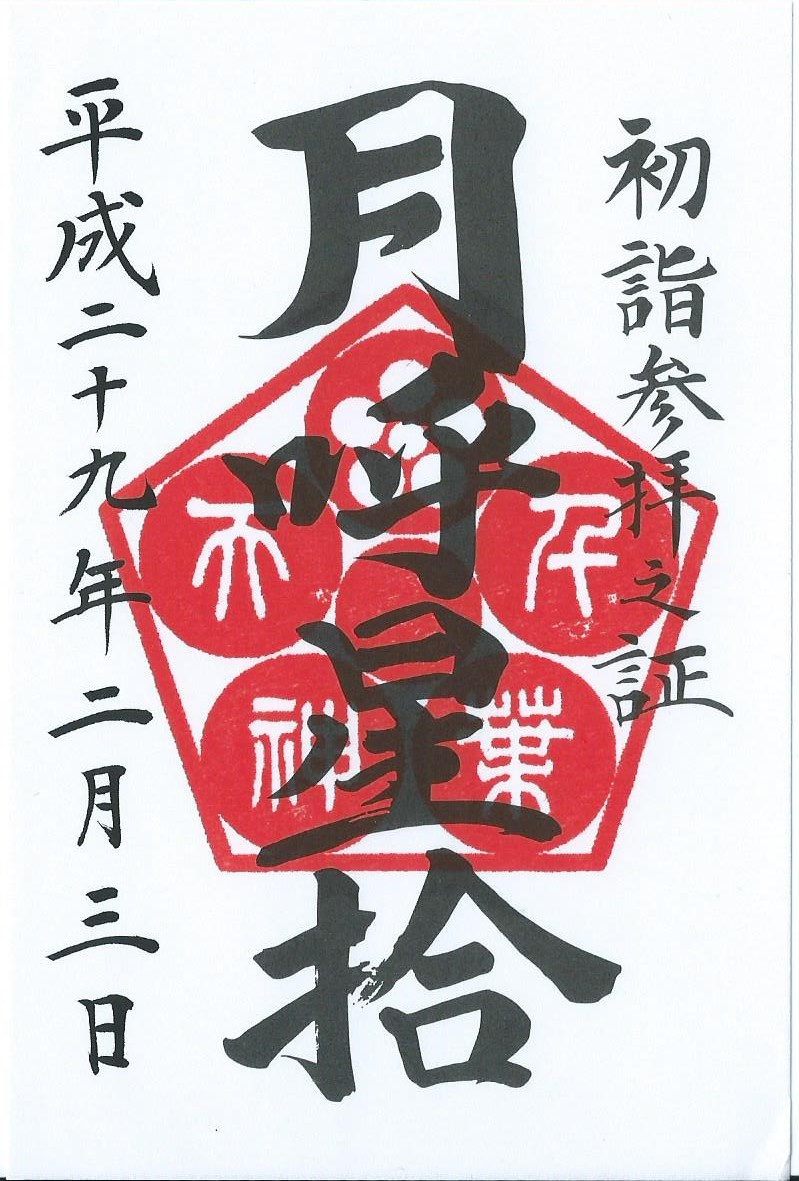 初詣参拝之証
月呼星拾
千葉
天神
平成二十九年二月三日